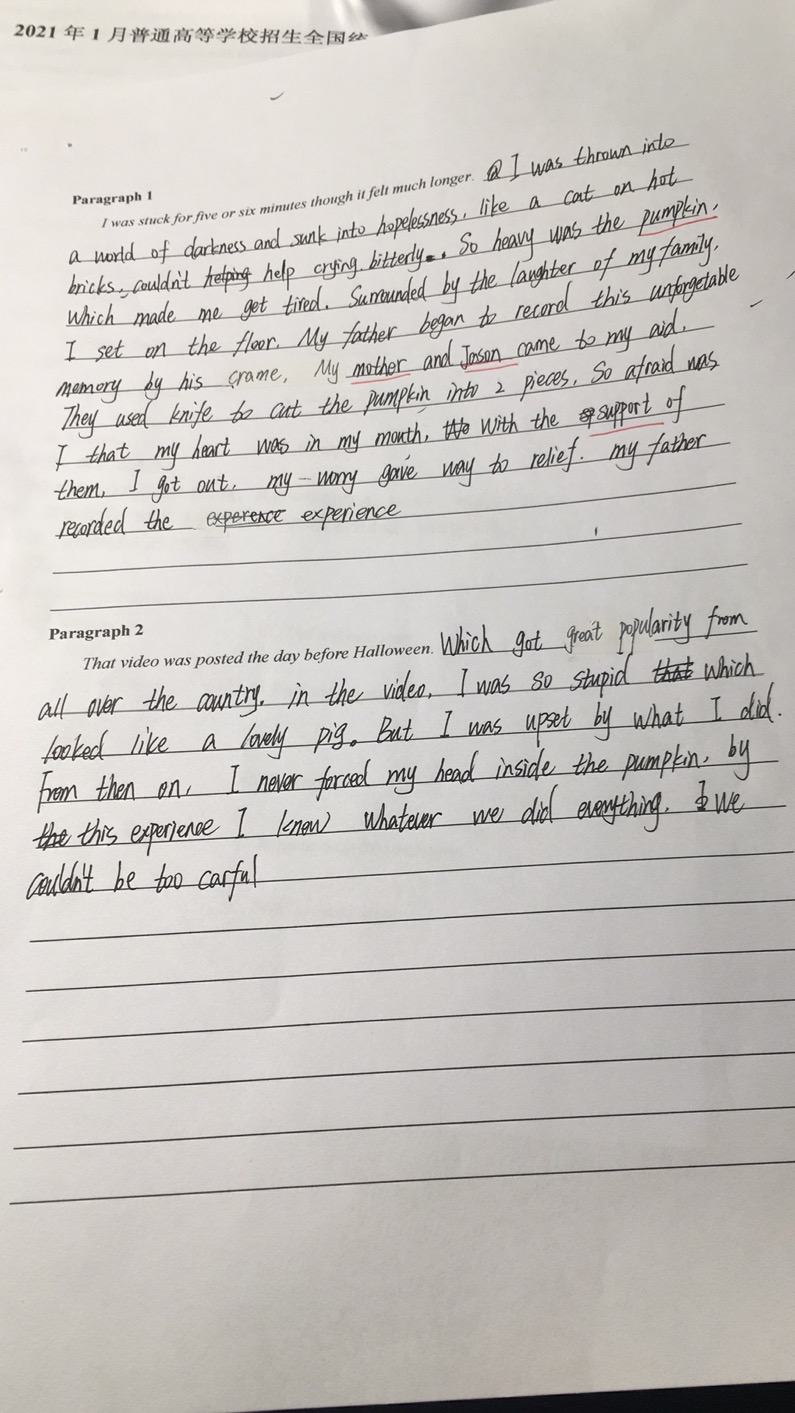 2021 年 1 月普通高等学校招生全国统
Paragraph 1
I was stuck for five or six minutes though it felt much longer. I was thrown into
a world of darkness and sunk into hopelessness, like a cat on hot
bricks, couldn't helping help crying bitterly. So heavy was the pumpkin,
which made me get tired. Surrounded by the laughter of my family,
I set on the floor. My father began to record this unforgetable
memory by his crame. My mother and Jason came to my aid.
They used knife to cut the pumpkin into 2 pieces. So afraid was
I that my heart was in my mouth, With the support of
them, I got out. my worry gave way to relief. my father
recorded the experence experience
Paragraph 2
That video was posted the day before Halloween. Which got great popularity from
all over the country. in the video, I was so stupid that which
looked like a lovely pig. But I was upset by what I did.
From then on, I never forced my head inside the pumpkin, by
the this experience I know whatever we did everything. we
couldn't be too carful